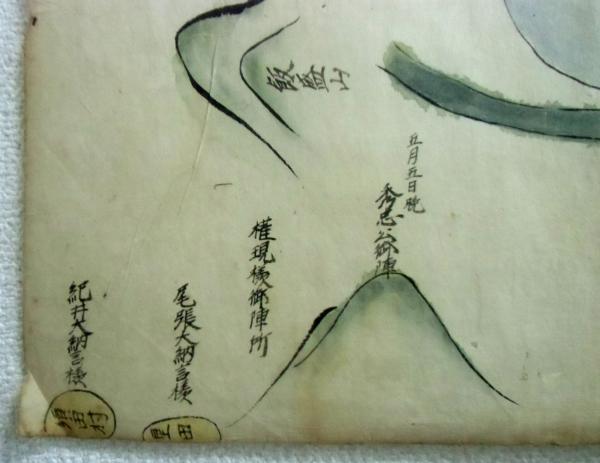 飯盛山
五月五日晩
秀忠公御陣
権現様御陣所
尾張大納言様
紀井大納言様
星田
須田村